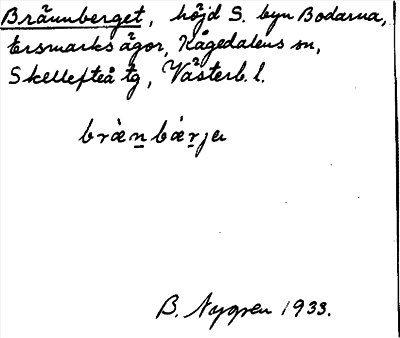 Brännberget, höjd S. byn Bodarna,
Ersmarks ägor, Kågedalens sn,
Skellefteå tg, Västerb. l.
brȧnbȧrjɐ
B. Nygren 1933.